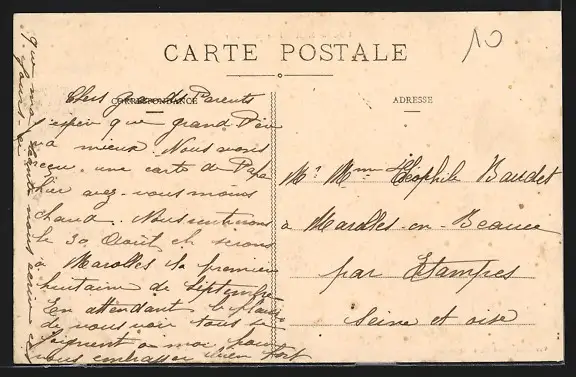 CARTE POSTALE
10
CORRESPONDANCE
ADRESSE
Chers grands Parents
j'espère que grand Père
va mieux. Nous avons
reçu une carte de Papa
hier avez-vous moins
chaud. Nous rentrerons
le 30 Août et serons
à Marolles la première
huitaine de Septembre
En attendant le plaisir
de vous voir tous se
joignent à moi pour
vous embrasser bien fort
Mr Mme Théophile Baudet
à Marolles-en-Beauce
par Etampes
Seine et oise